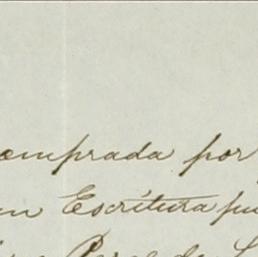 comprada por
en Escritura pu
Perez de L